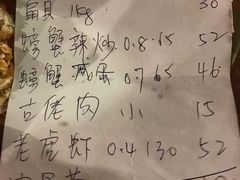 扇贝 1kg 30
螃蟹辣 0.8 65 52
螃蟹咸蛋 0.7 65 46
古佬肉 小 15
老虎虾 0.4 130 52